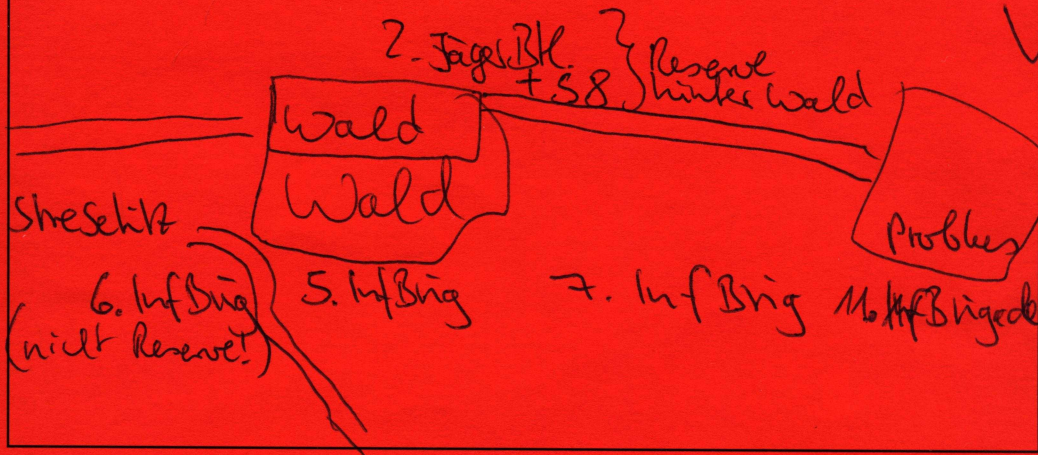 2. JägerBtl.
+ 58 } Reserve
hinter Wald
Wald
Wald
Streselitz
Problus
6. InfBrig
(nicht Reserve!)
5. InfBrig
7. Inf Brig
11. InfBrigade